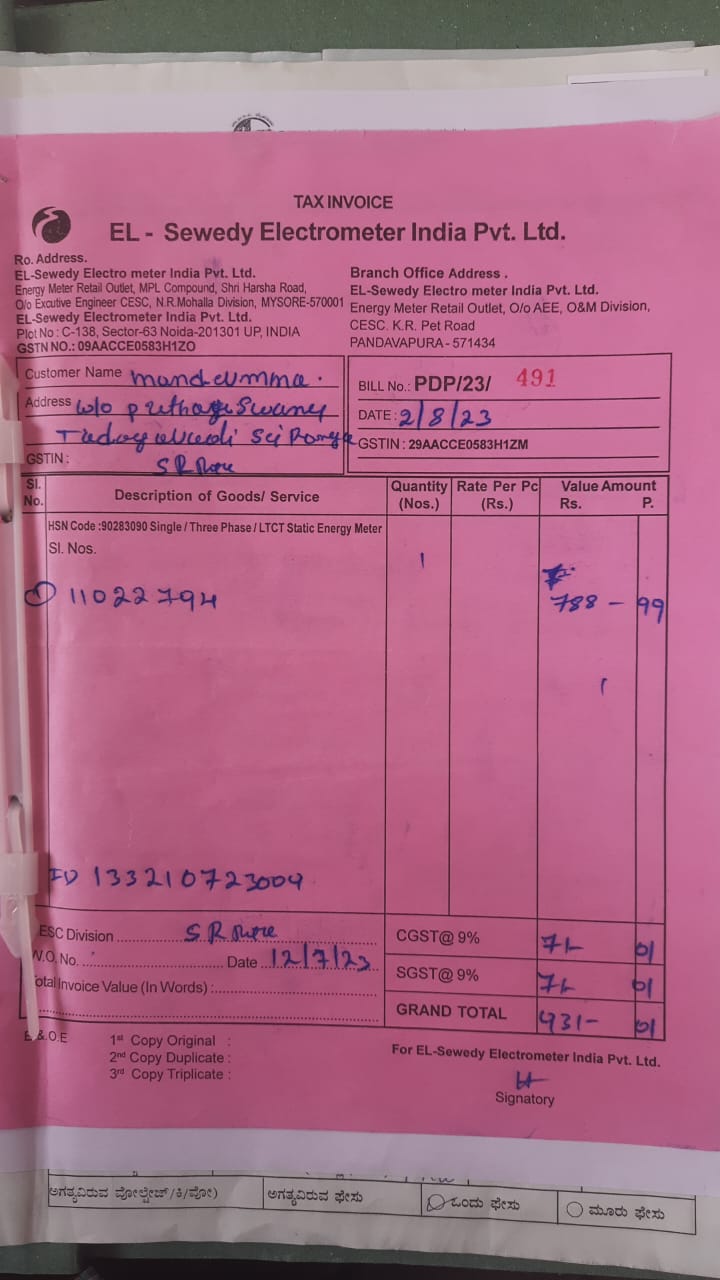 TAX INVOICE
EL - Sewedy Electrometer India Pvt. Ltd.
Ro. Address.
EL-Sewedy Electro meter India Pvt. Ltd.
Energy Meter Retail Outlet, MPL Compound, Shri Harsha Road,
O/o Excutive Engineer CESC, N.R.Mohalla Division, MYSORE-570001
EL-Sewedy Electrometer India Pvt. Ltd.
Plot No : C-138, Sector-63 Noida-201301 UP, INDIA
GSTN NO.: 09AACCE0583H1ZO
Branch Office Address .
EL-Sewedy Electro meter India Pvt. Ltd.
Energy Meter Retail Outlet, O/o AEE, O&M Division,
CESC. K.R. Pet Road
PANDAVAPURA - 571434
Customer Name
Address w/o
GSTIN :
BILL No.: PDP/23/ 491
DATE : 2/8/23
GSTIN : 29AACCE0583H1ZM
Sl. No. Description of Goods/ Service Quantity (Nos.) Rate Per Pc (Rs.) Value Amount Rs. P.
HSN Code :90283090 Single / Three Phase / LTCT Static Energy Meter
Sl. Nos. 1
① 11022794 788 - 99
ID 133210723004
ESC Division S R
W.O. No. Date 12/7/23
Total Invoice Value (In Words) :
CGST@ 9% 71 01
SGST@ 9% 71 01
GRAND TOTAL 931- 01
E.&.O.E
1st Copy Original :
2nd Copy Duplicate :
3rd Copy Triplicate :
For EL-Sewedy Electrometer India Pvt. Ltd.
Signatory
ಅಗತ್ಯವಿರುವ ವೋಲ್ಟೇಜ್ /ಕಿ/ವೋ) ಅಗತ್ಯವಿರುವ ಫೇಸು ಒಂದು ಫೇಸು ಮೂರು ಫೇಸು